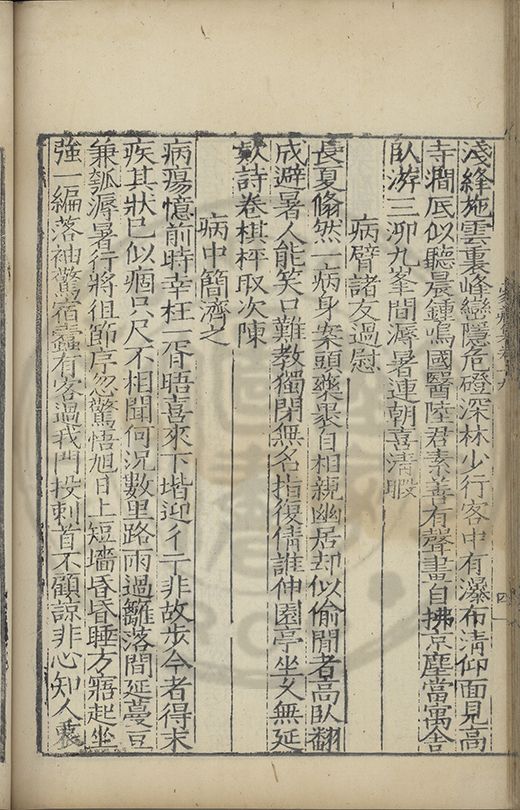 淺絳施雲裏峰巒隱危磴深林少行客中有瀑布清仰面見高
寺澗底似聽晨鍾鳴國醫陸君素善有聲畫自拂京塵當寓舍
臥游三泖九峯間溽暑連朝喜清暇
病臂諸友過慰
長夏翛然一病身案頭藥裹自相親幽居却似偷閒者高臥翻
成避暑人能笑口難教獨閉無名指復倩誰伸園亭坐久無延
欵詩卷棋枰取次陳
病中簡濟之
病瘍憶前時幸枉一胥晤喜來下堦迎彳亍非故步今者得末
疾其狀已似痼只尺不相聞何況數里路雨過籬落間延蔓豆
兼瓠溽暑行將徂節序忽驚悟旭日上短墻昏昏睡方寤起坐
強一編落袖驚宿蠹有客過我門投刺首不顧諒非心知人裹
四